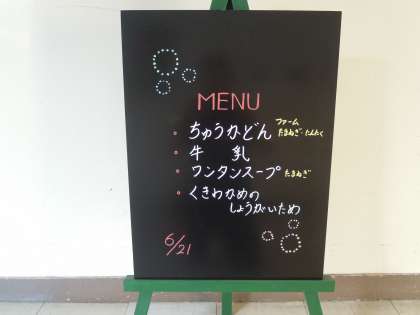 MENU
ちゅうかどん ファーム
たまねぎ・にんにく
牛 乳
ワンタンスープ たまねぎ
くきわかめの
しょうがいため
6/21